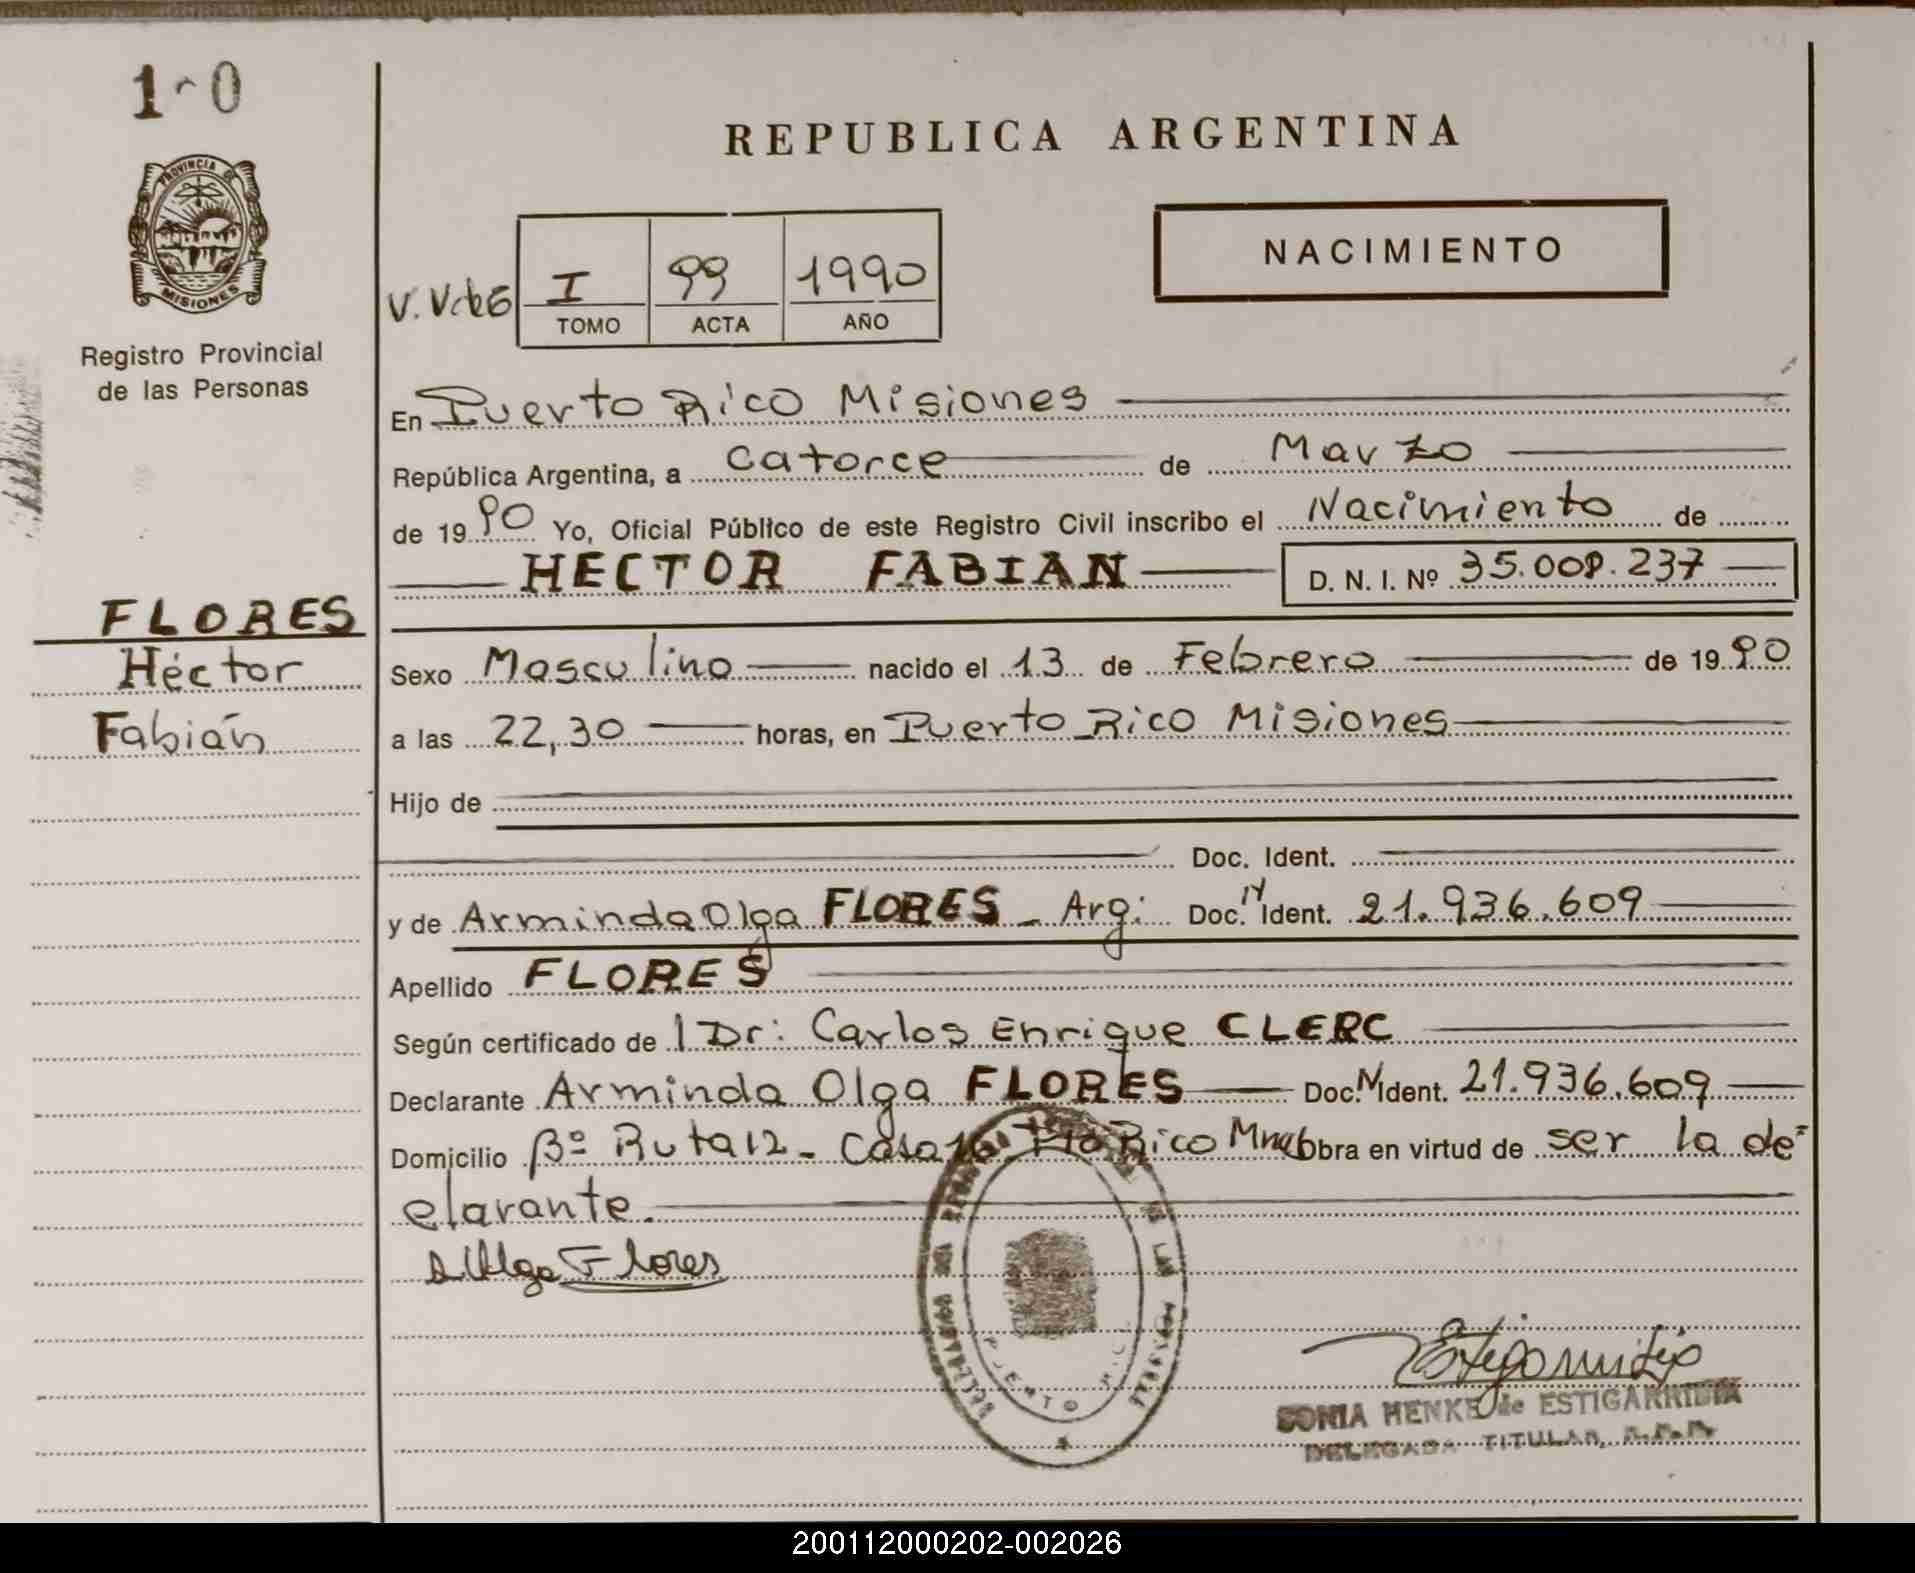 1 0
REPUBLICA ARGENTINA
PROVINCIA DE
MISIONES
Registro Provincial
de las Personas
NACIMIENTO
I 99 1990
TOMO ACTA AÑO
En Puerto Rico Misiones
República Argentina, a catorce de Marzo
de 1990 Yo, Oficial Público de este Registro Civil inscribo el Nacimiento de
HECTOR FABIAN D. N. I. Nº 35.008.237
FLORES
Héctor
Fabián
Sexo Masculino nacido el 13 de Febrero de 1990
a las 22,30 horas, en Puerto Rico Misiones
Hijo de
Doc. Ident.
y de Arminda Olga FLORES - Arg: Doc. N Ident. 21.936.609
Apellido FLORES
Según certificado de l Dr: Carlos Enrique CLERC
Declarante Arminda Olga FLORES Doc. N Ident. 21.936.609
Domicilio Bº Ruta 12 - Casa 16 Pto Rico Mnes Obra en virtud de ser la de=
clarante.
Olga Flores
PUERTO RICO
SONIA HENKE de ESTIGARRIBIA
DELEGADA TITULAR, R.P.P.
200112000202-002026